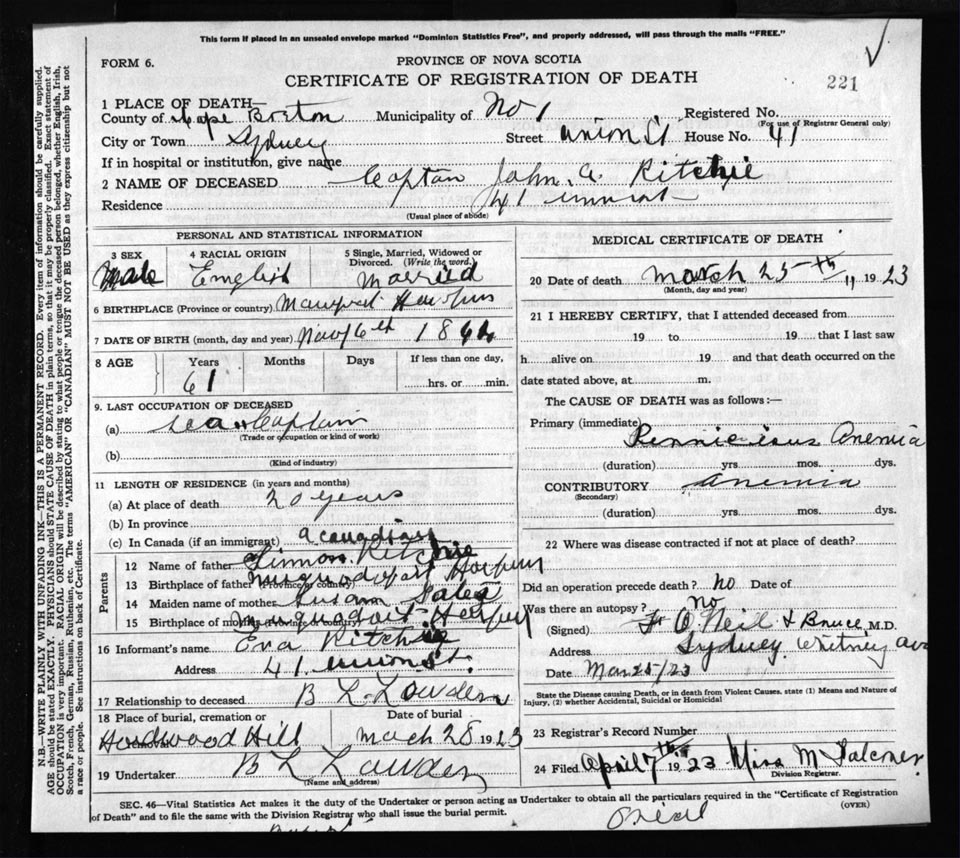 This form if placed in an unsealed envelope marked "Dominion Statistics Free", and properly addressed, will pass through the mails "FREE."
FORM 6.
PROVINCE OF NOVA SCOTIA
CERTIFICATE OF REGISTRATION OF DEATH
221
1 PLACE OF DEATH—
County of Cape Breton Municipality of No 1 Registered No.
(For use of Registrar General only)
City or Town Sydney Street Union St House No. 41
If in hospital or institution, give name
2 NAME OF DECEASED Captan John A. Ritchie
Residence 41 union st
(Usual place of abode)
PERSONAL AND STATISTICAL INFORMATION
3 SEX Male
4 RACIAL ORIGIN English
5 Single, Married, Widowed or Divorced. (Write the word.) Married
6 BIRTHPLACE (Province or country)
7 DATE OF BIRTH (month, day and year) Nov 6th
8 AGE Years 61 Months Days If less than one day, hrs. or min.
9. LAST OCCUPATION OF DECEASED
(a) Sea Captain
(Trade or occupation or kind of work)
(b)
(Kind of industry)
11 LENGTH OF RESIDENCE (in years and months)
(a) At place of death 20 years
(b) In province
(c) In Canada (if an immigrant) a canadian
Parents
12 Name of father Simon Ritchie
13 Birthplace of father (Province or country)
14 Maiden name of mother Susann
15 Birthplace of mother (Province or country)
16 Informant's name Eva Ritchie
Address 41 union St.
17 Relationship to deceased B L Lowden
18 Place of burial, cremation or removal Hardwood Hill
Date of burial Mach 28 1923
19 Undertaker B L Lowden
(Name and address)
MEDICAL CERTIFICATE OF DEATH
20 Date of death March 25th 1923
(Month, day and year)
21 I HEREBY CERTIFY, that I attended deceased from
19 to 19 that I last saw
h alive on 19 and that death occurred on the
date stated above, at m.
The CAUSE OF DEATH was as follows:—
Primary (immediate) Pernicious Anemia
(duration) yrs. mos. dys.
CONTRIBUTORY anemia
(Secondary)
(duration) yrs. mos. dys.
22 Where was disease contracted if not at place of death?
Did an operation precede death? no Date of
Was there an autopsy? no
(Signed) O'Neil & Bruce M.D.
Address Sydney Whitney Ave
Date Mar 25/23
State the Disease causing Death, or in death from Violent Causes, state (1) Means and Nature of Injury, (2) whether Accidental, Suicidal or Homicidal
23 Registrar's Record Number
24 Filed April 7th 1923 Miss M Falconer
Division Registrar.
SEC. 46—Vital Statistics Act makes it the duty of the Undertaker or person acting as Undertaker to obtain all the particulars required in the "Certificate of Registration
of Death" and to file the same with the Division Registrar who shall issue the burial permit.
(OVER)
Oneil
N.B.—WRITE PLAINLY WITH UNFADING INK—THIS IS A PERMANENT RECORD. Every item of information should be carefully supplied.
AGE should be stated EXACTLY. PHYSICIANS should STATE CAUSE OF DEATH in plain terms, so that it may be properly classified. Exact statement of
OCCUPATION is very important. RACIAL ORIGIN will be described by stating to what people or tongue the deceased person belonged, whether English, Irish,
Scotch, French, German, Russian, Ruthenian, etc. The terms "AMERICAN" OR "CANADIAN" MUST NOT BE USED as they express citizenship but not
a race or people. See instructions on back of Certificate.